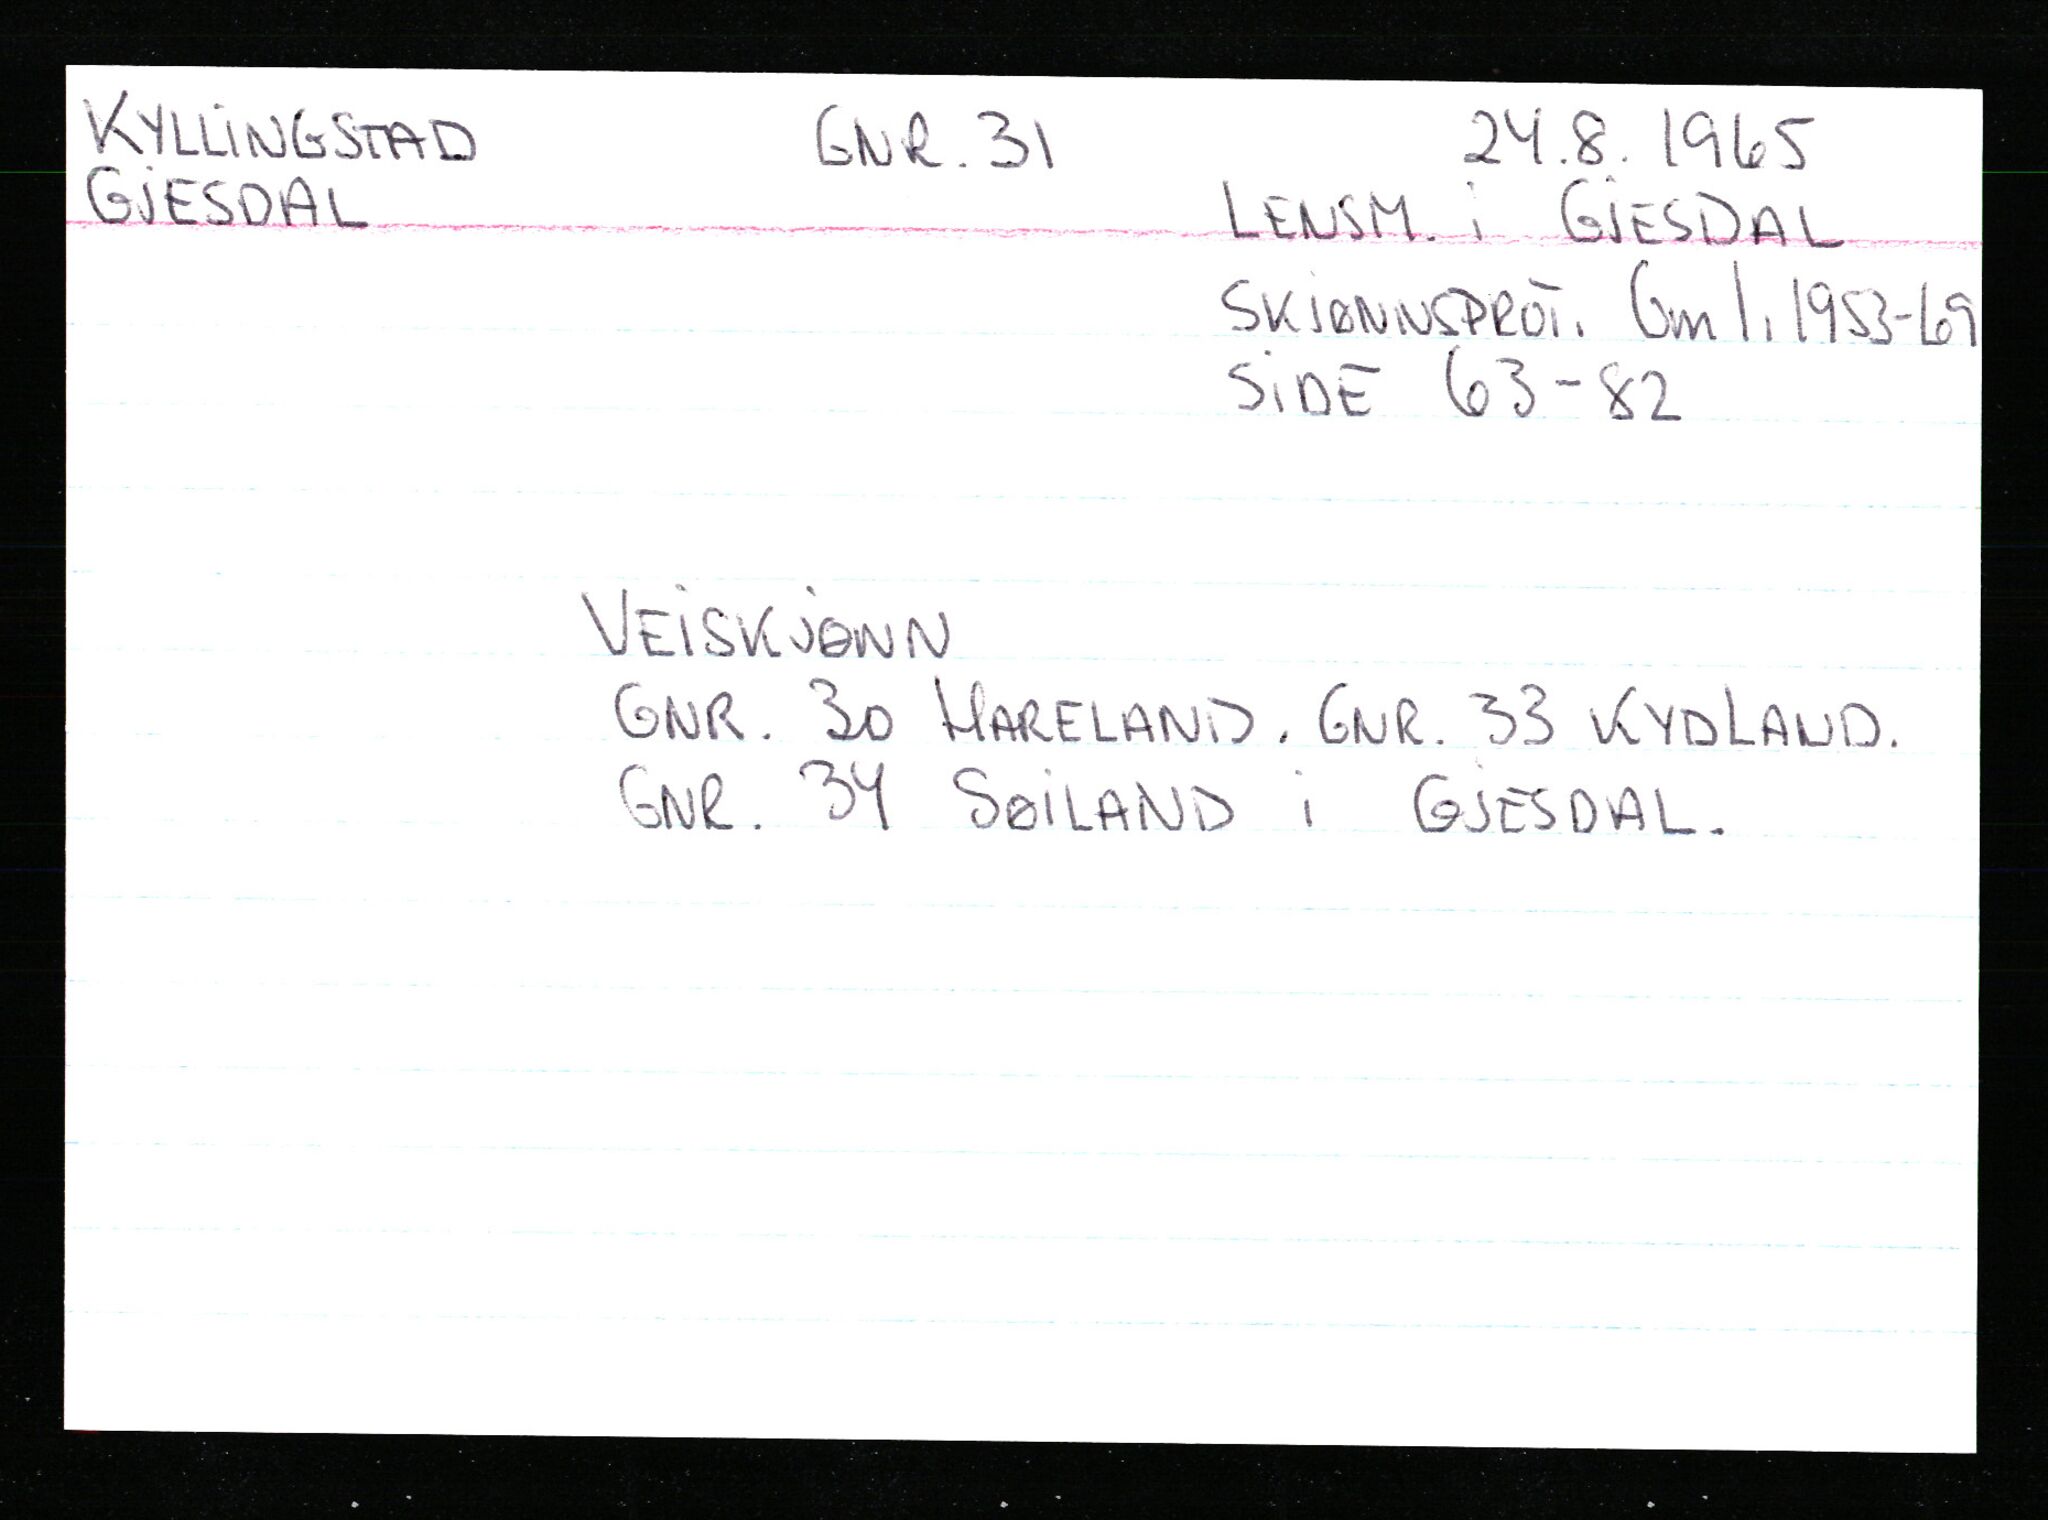 KYLLINGSTAD GNR. 31 24.8. 1965
GJESDAL LENSM. i GJESDAL
SKJØNNSPROT. 6m 1, 1953-69
SIDE 63-82
VEISKJØNN
GNR. 30 HARELAND. GNR. 33 KYDLAND.
GNR. 34 SØILAND i GJESDAL.